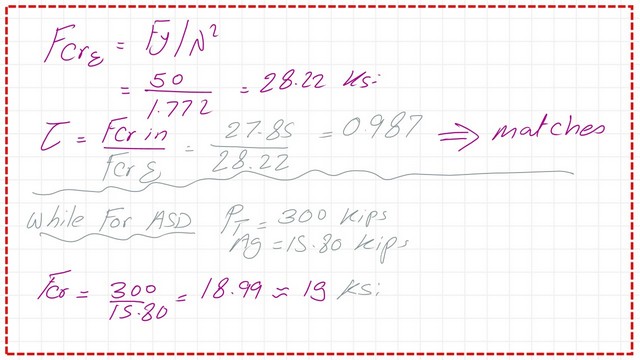 Fcrε = Fy/λ²
= 50/1.772 = 28.22 Ksi
τ = Fcr in/Fcr ε = 27.85/28.22 = 0.987 ⇒ matches
While For ASD PT = 300 Kips
Ag = 15.80 Kips
Fcr = 300/15.80 = 18.99 ≈ 19 Ksi